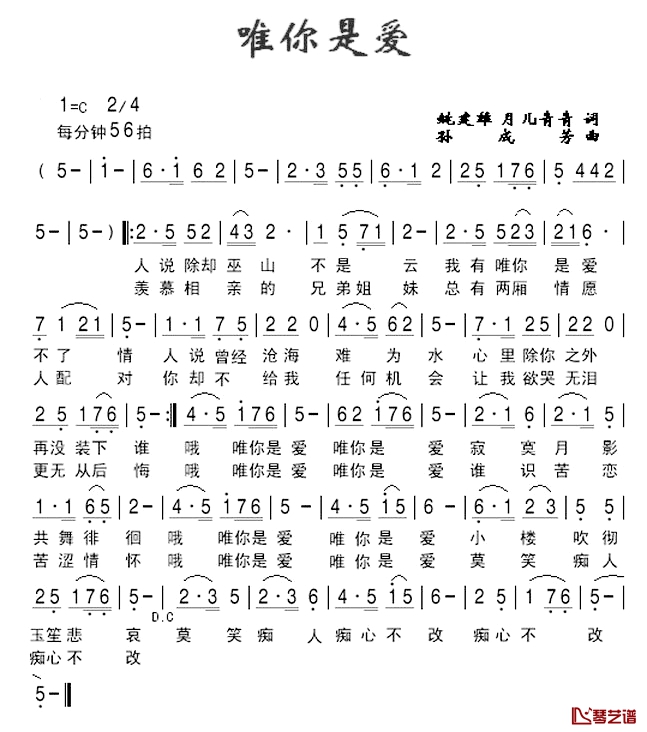 唯你是爱
1=C 2/4
每分钟56拍
姚建雄 月儿青青 词
孙成芳 曲
( 5- | 1- | 6·1 6 2 | 5- | 2·3 5 5 | 6·1 2 | 2 5 1 7 6 | 5 4 4 2 |
5- | 5- ) |: 2·5 5 2 | 4 3 2· | 1 5 7 1 | 2- | 2·5 5 2 3 | 2 1 6· |
人说除却巫山 不是 云我有唯你 是爱
羡慕相亲的 兄弟姐 妹总有两厢 情愿
7 1 2 1 | 5- | 1·1 7 5 | 2 2 0 | 4·5 6 2 | 5- | 7·1 2 5 | 2 2 0 |
不了 情 人说曾经 沧海 难 为 水 心里除你之外
人配 对 你却不 给我 任何机 会 让我欲哭无泪
2 5 1 7 6 | 5- :| 4·5 1 7 6 | 5- | 6 2 1 7 6 | 5- | 2·1 6 | 2·1 5 |
再没装下 谁 哦 唯你是 爱 唯你是 爱 寂 寞月 影
更无从后 悔 哦 唯你是 爱 唯你是 爱 谁 识苦 恋
1·1 6 5 | 2- | 4·5 1 7 6 | 5- | 4·5 1 5 | 6- | 6·1 2 3 | 5 5 |
共舞徘 徊 哦 唯你是 爱 唯 你是 爱 小 楼 吹彻
苦涩情 怀 哦 唯你是 爱 唯 你是 爱 莫 笑 痴人
2 5 1 7 6 | 5- | 2·3 5 | 2·3 6 | 4·5 1 5 | 6- | 2 5 1 7 6 | 5- |
D.C
玉笙悲 哀 莫 笑 痴 人 痴心不 改 痴心不 改
痴心不 改
5- ||
琴艺谱